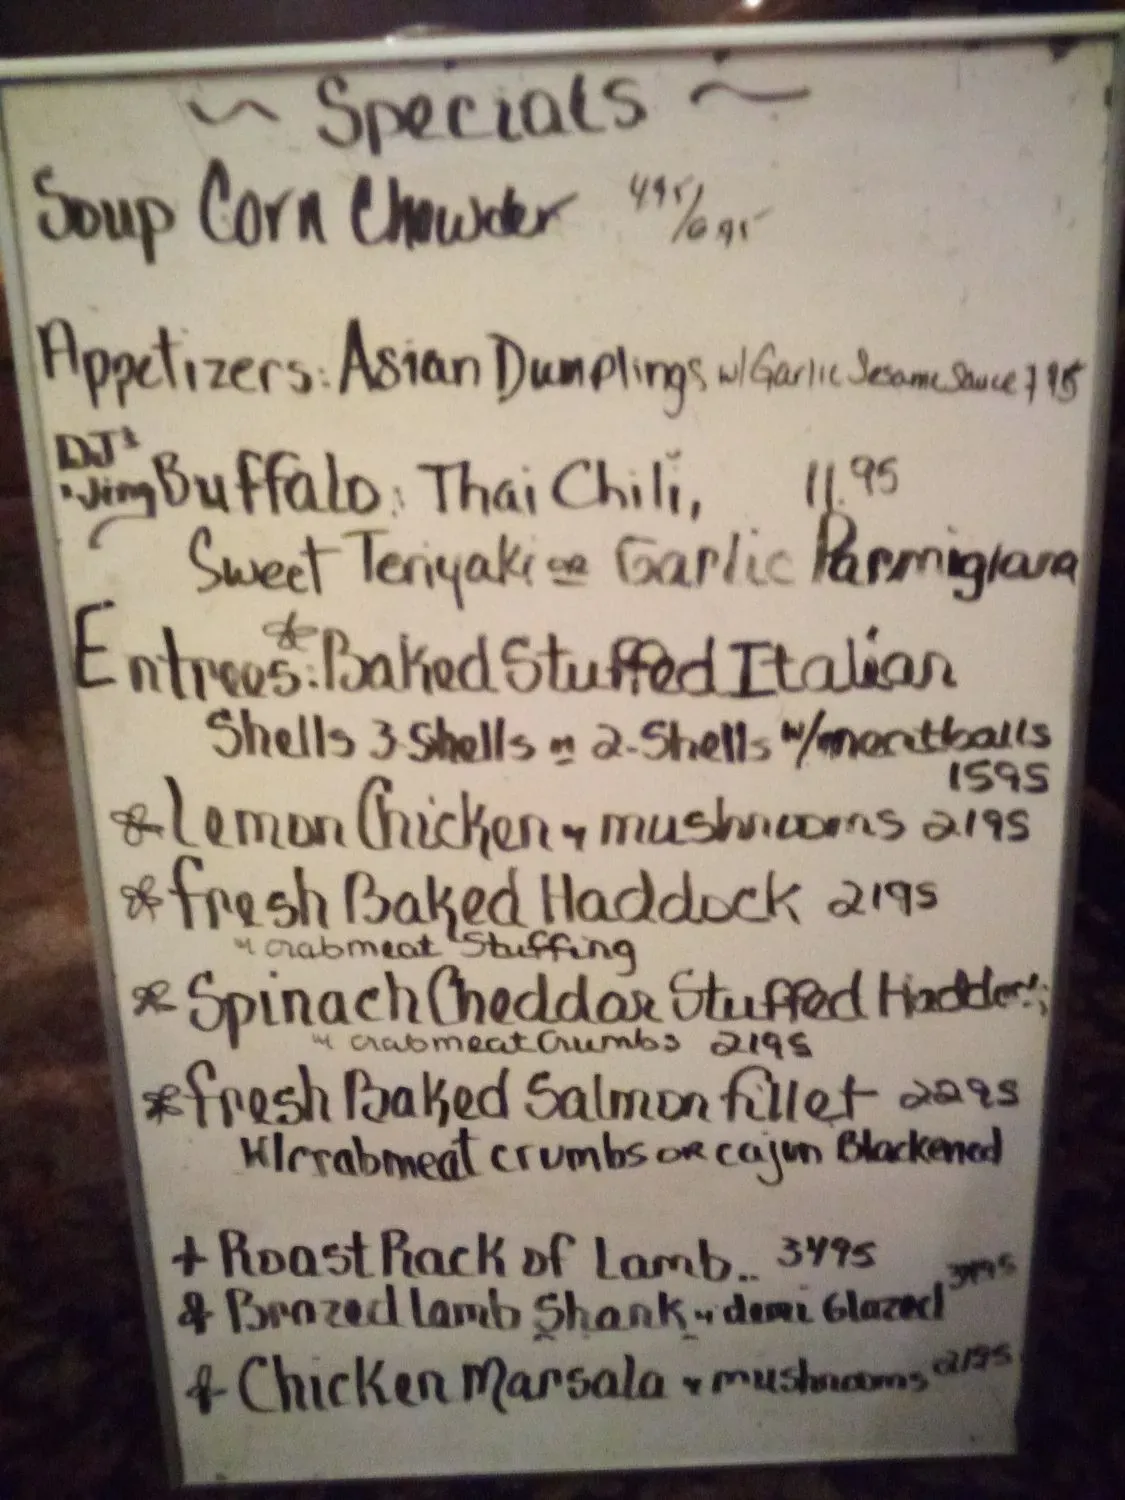 ~ Specials ~
Soup Corn Chowder 495/695
Appetizers: Asian Dumplings w/Garlic Sesame Sauce 795
DJ's
Wing Buffalo: Thai Chili, 11.95
Sweet Teriyaki or Garlic Parmigiana
Entrees: Baked Stuffed Italian
Shells 3-Shells or 2-Shells w/meatballs
1595
Lemon Chicken w mushrooms 2195
fresh Baked Haddock 2195
w crabmeat Stuffing
Spinach Cheddar Stuffed
w crabmeat Crumbs 2195
fresh Baked Salmon fillet 2295
W/crabmeat crumbs or cajun Blackened
+ Roast Rack of Lamb.. 3495
& Brazed lamb Shank w demi Glazed
& Chicken Marsala w mushrooms 2195